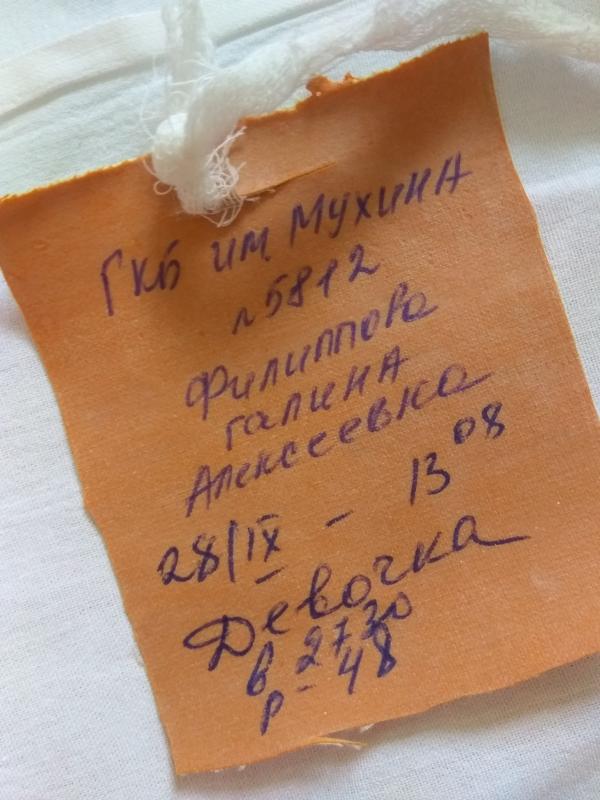 ГКБ им. МУХИНА
n 5812
Филиппова
Галина
Алексеевна
28/IX - 13 08
Девочка
в 2730
р - 48